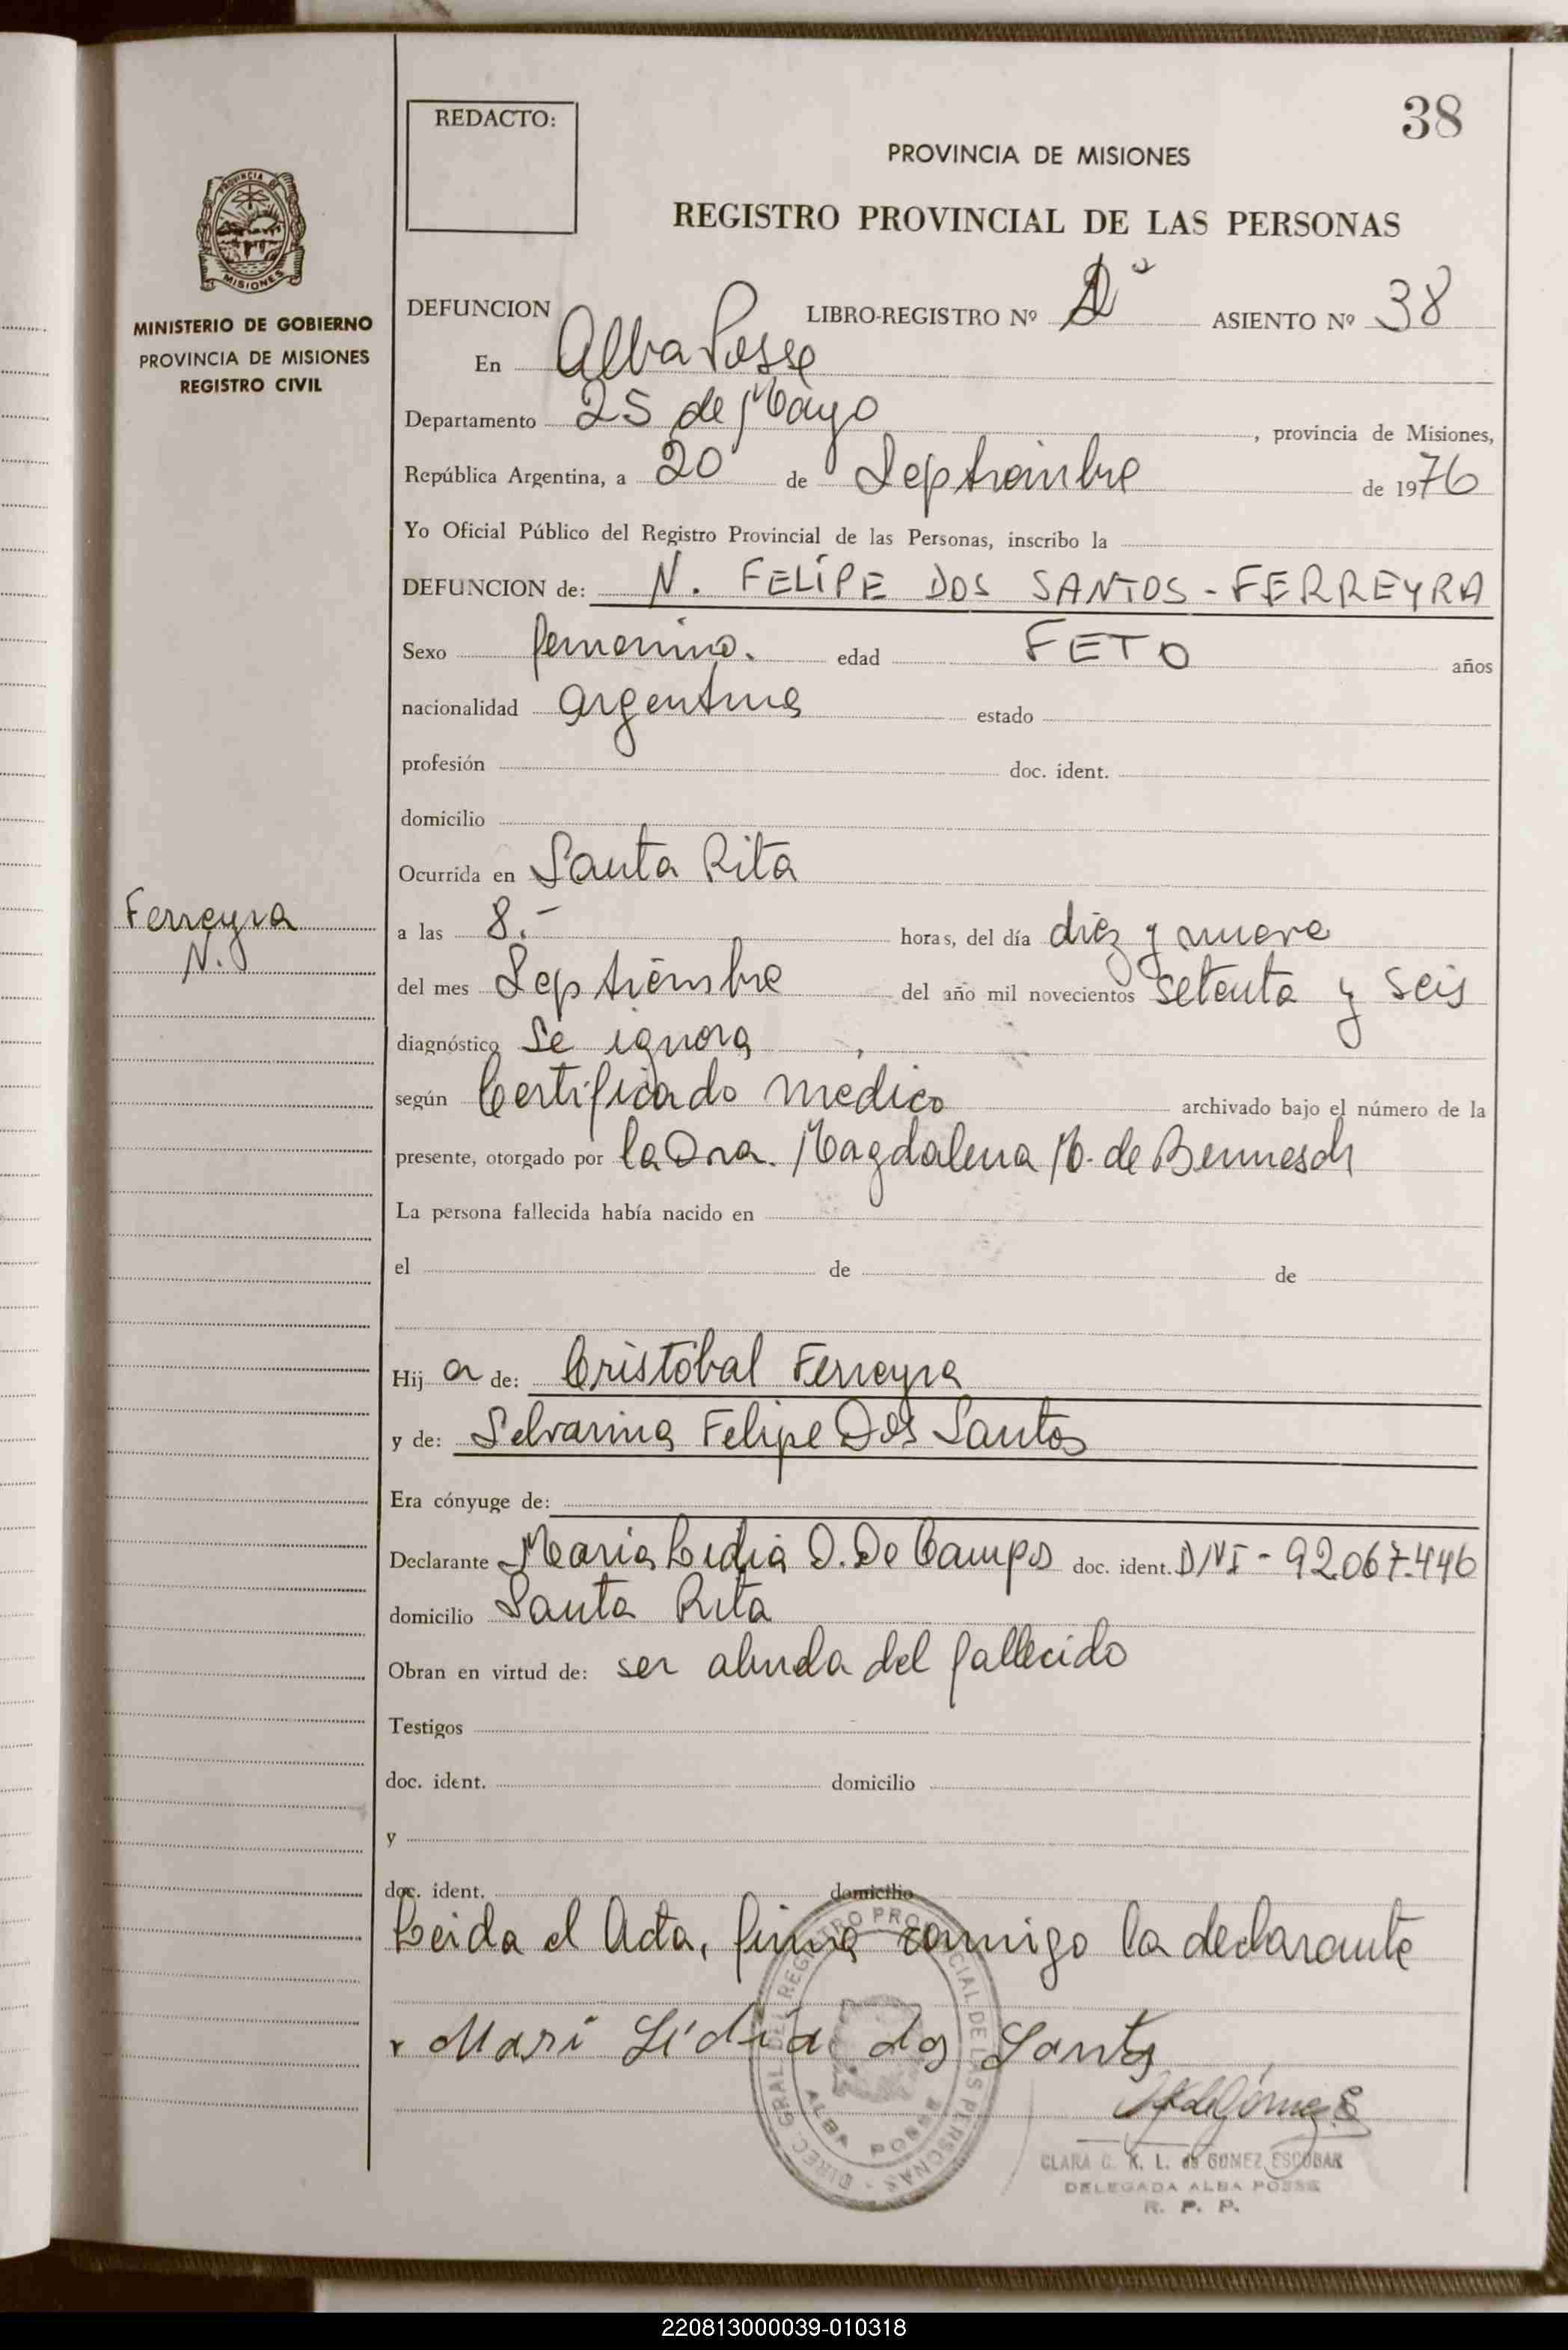 38
REDACTO:
PROVINCIA DE MISIONES
REGISTRO PROVINCIAL DE LAS PERSONAS
PROVINCIA DE MISIONES
MINISTERIO DE GOBIERNO
PROVINCIA DE MISIONES
REGISTRO CIVIL
DEFUNCION LIBRO-REGISTRO Nº ASIENTO Nº 38
En Alba Posse
Departamento 25 de Mayo, provincia de Misiones,
República Argentina, a 20 de Septiembre de 1976
Yo Oficial Público del Registro Provincial de las Personas, inscribo la
DEFUNCION de: N. FELIPE DOS SANTOS - FERREYRA
Sexo femenino. edad FETO años
nacionalidad argentina estado
profesión doc. ident.
domicilio
Ocurrida en Santa Rita
Ferreyra
N.
a las 8.- horas, del día diez y nueve
del mes Septiembre del año mil novecientos setenta y seis
diagnóstico Se ignora
según Certificado médico archivado bajo el número de la
presente, otorgado por la Dra. Magdalena M. de Bennesch
La persona fallecida había nacido en
el de de
Hij a de: Cristobal Ferreyra
y de: Selvarina Felipe Dos Santos
Era cónyuge de:
Declarante Maria Lidia D. De Campos doc. ident. DNI - 92.067.446
domicilio Santa Rita
Obran en virtud de: ser abuela del fallecido
Testigos
doc. ident. domicilio
y
doc. ident. domicilio
Leida el Acta, firma conmigo la declarante
Mari Lidia dos Santos
DIREC. GRAL DEL REGISTRO PROVINCIAL DE LAS PERSONAS
ALBA POSSE
CLARA C. K. L. de GOMEZ ESCOBAR
DELEGADA ALBA POSSE
R. P. P.
220813000039-010318